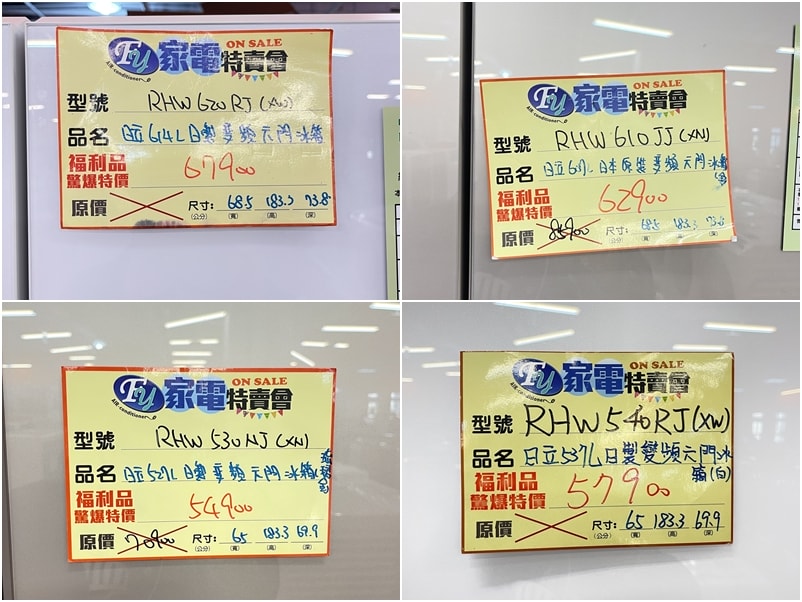 FU 家電特賣會 ON SALE
Air conditioner
型號 RHW 620 RJ (XW)
品名 日立 614L 日製變頻六門冰箱
福利品
驚爆特價 67900
原價 尺寸: 68.5 183.3 73.8
(公分) (寬) (高) (深)
FU 家電特賣會 ON SALE
Air conditioner
型號 RHW 610 JJ (XN)
品名 日立 日本原裝變頻六門冰箱
福利品
驚爆特價 62900
原價 85900 尺寸: 68.5 183.3 73.8
(公分) (寬) (高) (深)
FU 家電特賣會 ON SALE
Air conditioner
型號 RHW 530 NJ (XN)
品名 日立 527L 日製變頻六門冰箱
福利品
驚爆特價 54900
原價 70900 尺寸: 65 183.3 69.9
(公分) (寬) (高) (深)
FU 家電特賣會 ON SALE
Air conditioner
型號 RHW 540 RJ (XW)
品名 日立 537L 日製變頻六門冰
箱(白)
福利品
驚爆特價 57900
原價 尺寸: 65 183.3 69.9
(公分) (寬) (高) (深)